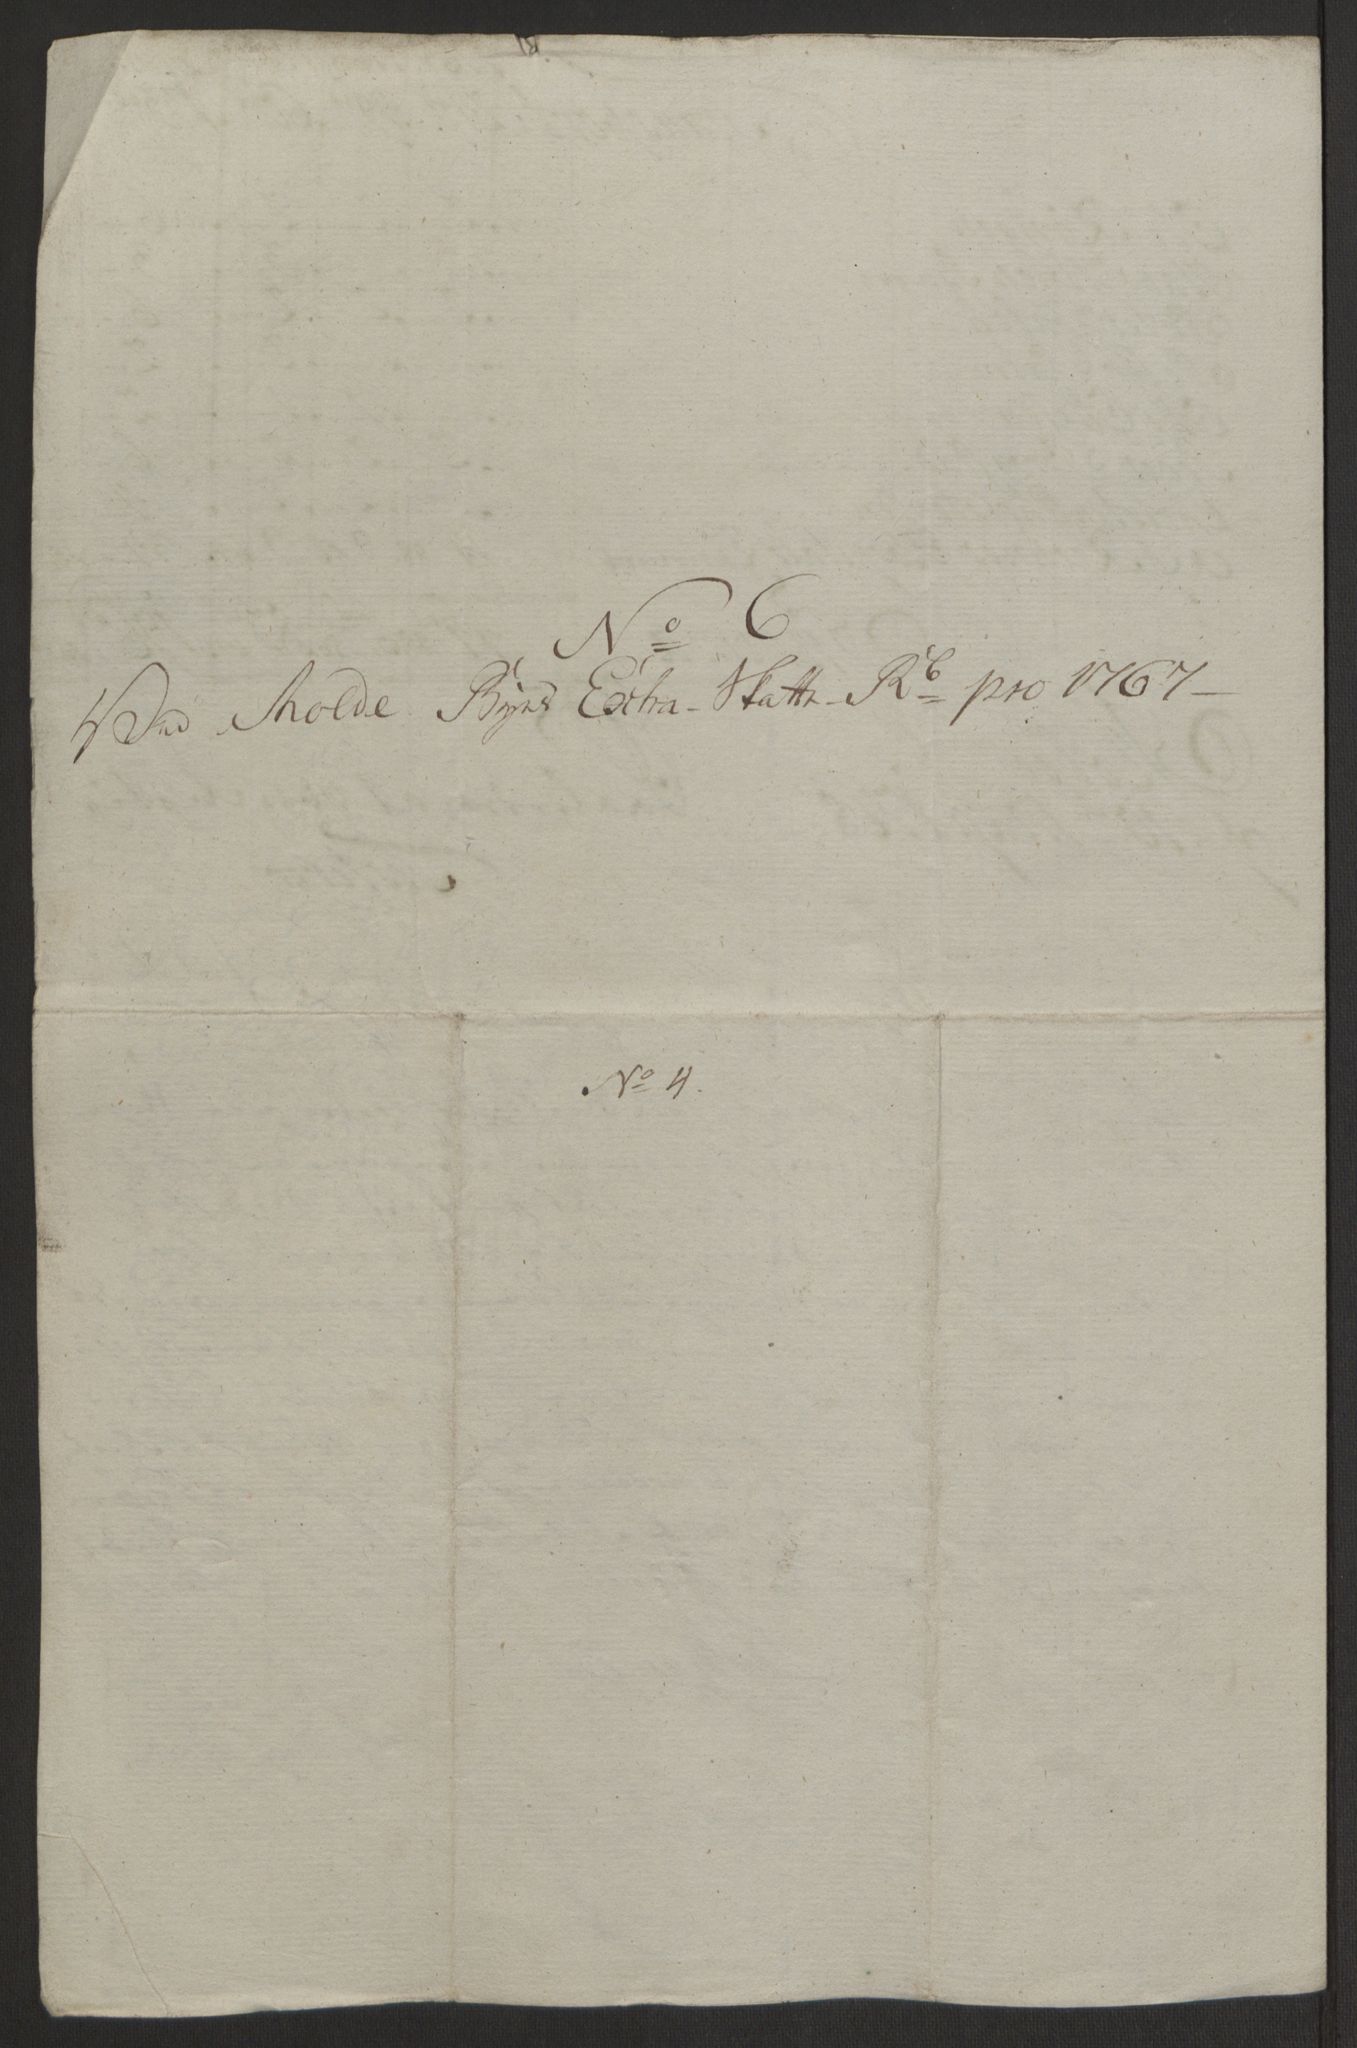 No 6
Ved Molde Byes Extra-Skatte-Rb pro 1767
No 4.